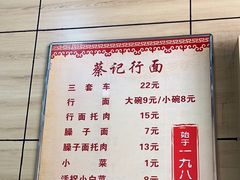 蔡记行面
三套车 22元
行面 大碗9元/小碗8元
行面托肉 15元
臊子面 7元
臊子面托肉 13元
小菜 1元
始于一九八